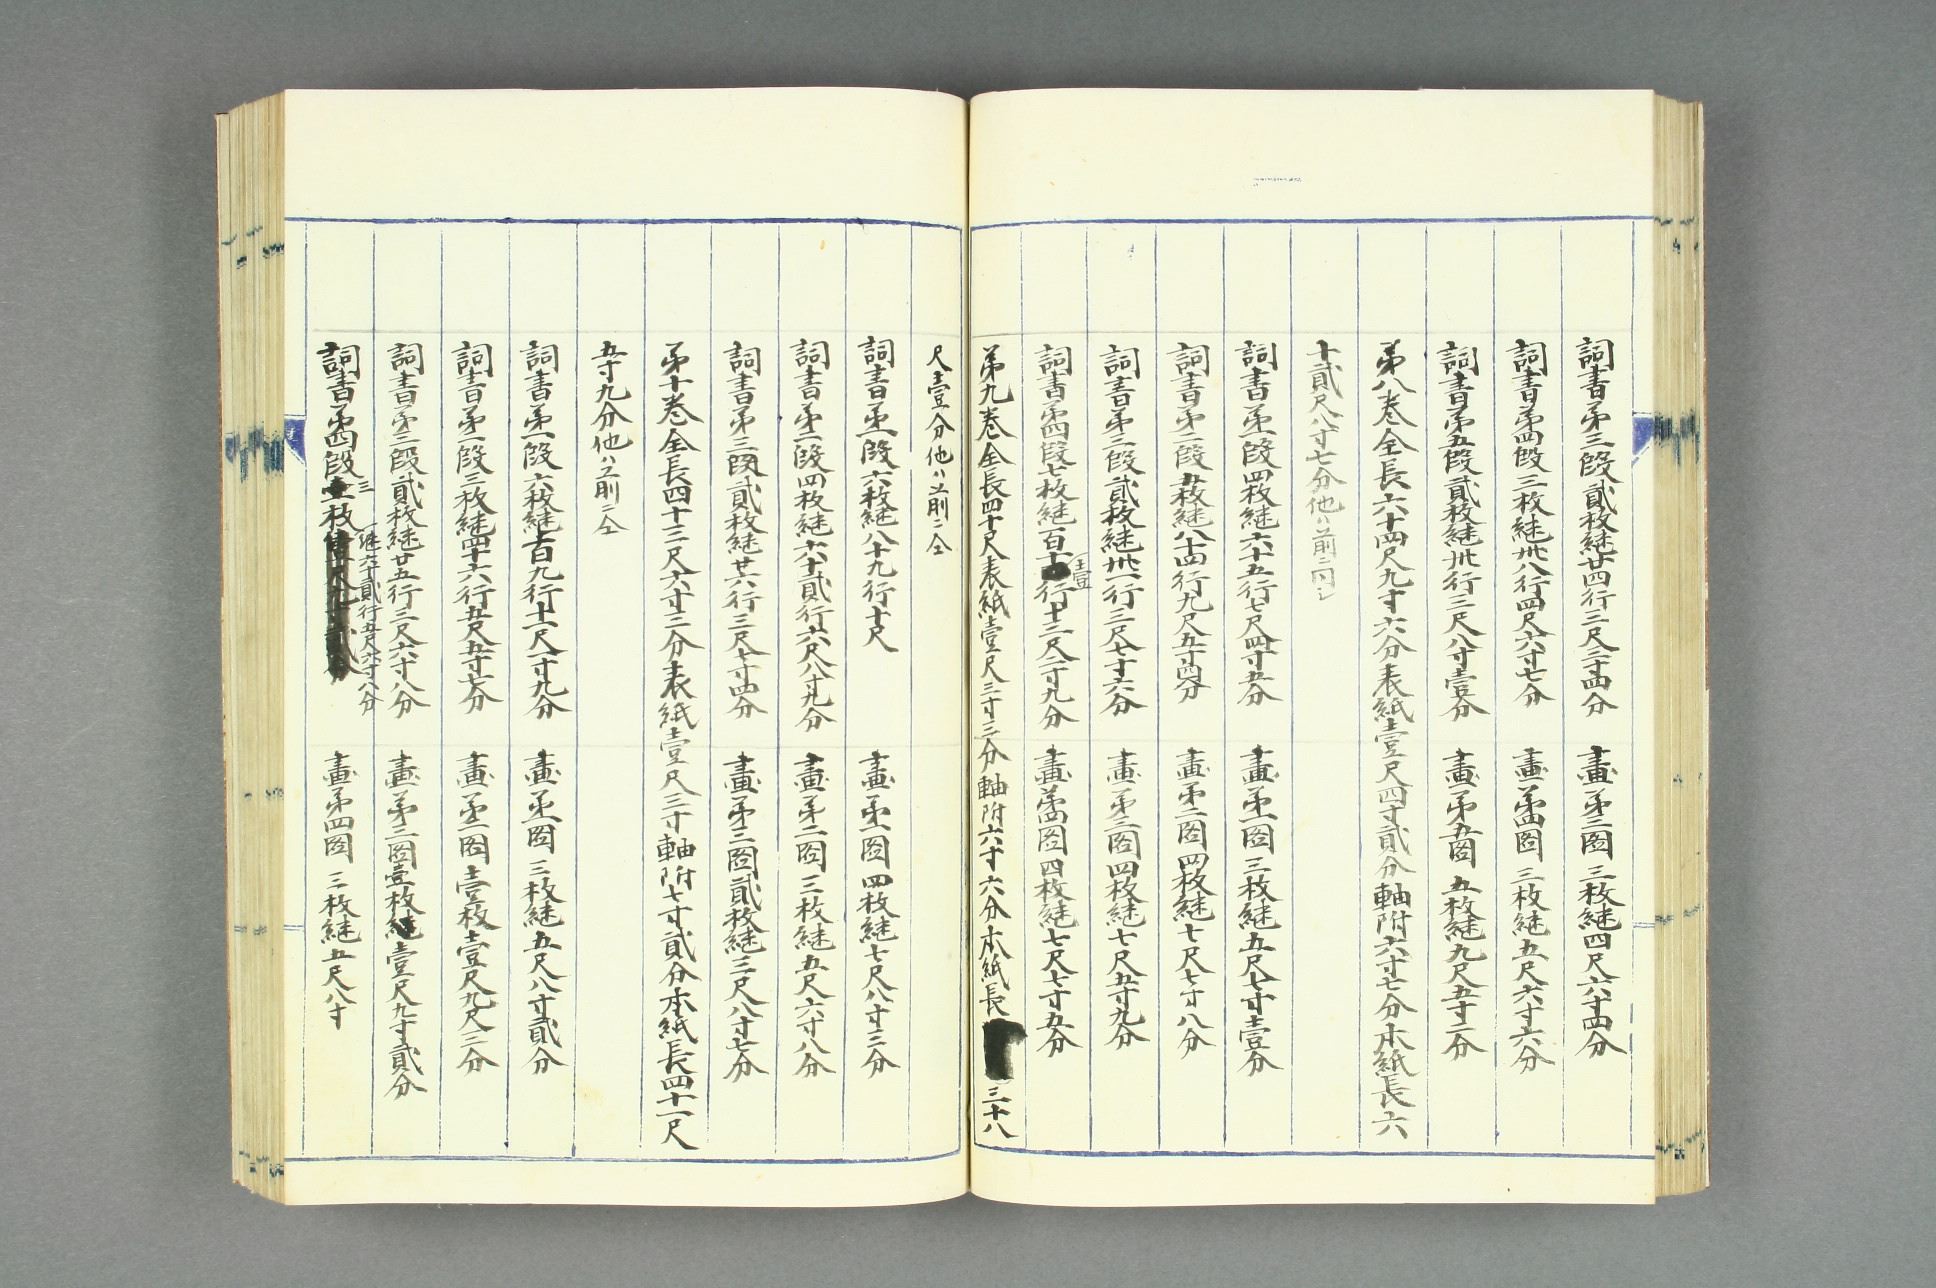 詞書第三段貳枚継廿四行三尺二寸四分　畫第三図三枚継四尺六寸四分
詞書第四段三枚継卅八行四尺六寸七分　畫第四図三枚継五尺六寸六分
詞書第五段貳枚継卅行三尺八寸壹分　畫第五図五枚継九尺五寸二分
第八巻全長六十四尺九寸六分表紙壹尺四寸貳分軸附六寸七分本紙長六
十貳尺八寸七分他ハ前ニ同シ
詞書第一段四枚継六十五行七尺四寸五分　畫第一図三枚継五尺七寸壹分
詞書第二段五枚継八十四行九尺五寸四分　畫第二図四枚継七尺七寸八分
詞書第三段貳枚継卅一行三尺七寸六分　畫第三図四枚継七尺五寸九分
詞書第四段七枚継百十壹行十二尺二寸九分　畫第四図四枚継七尺七寸五分
第九巻全長四十尺表紙壹尺三寸三分軸附六寸六分本紙長三十八
尺壹分他ハ前ニ仝
詞書第一段六枚継八十九行十尺　畫第一図四枚継七尺八寸三分
詞書第二段四枚継六十貳行六尺八寸九分　畫第二図三枚継五尺六寸八分
詞書第三段貳枚継廿六行三尺七寸四分　畫第三図貳枚継三尺八寸七分
第十巻全長四十三尺六寸三分表紙壹尺三寸軸附七寸貳分本紙長四十一尺
五寸九分他ハ前ニ仝
詞書第一段六枚継百九行十一尺一寸九分　畫第一図三枚継五尺八寸貳分
詞書第二段三枚継四十六行五尺五寸七分　畫第二図壹枚壹尺九尺三分
詞書第三段貳枚継廿五行三尺六寸八分　畫第三図壹枚壹尺九寸貳分
詞書第四段三枚継六十貳行五尺六寸八分　畫第四図三枚継五尺八寸